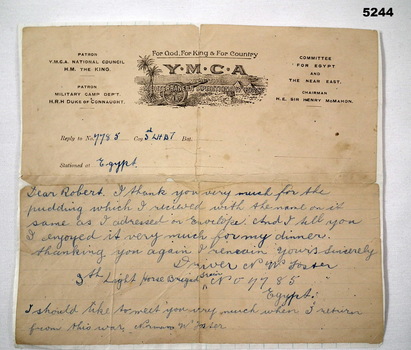 5244
For God, For King & For Country
Y·M·C·A
PATRON
Y.M.C.A. NATIONAL COUNCIL
H.M. THE KING.
PATRON
MILITARY CAMP DEPT.
H.R.H DUKE OF CONNAUGHT.
COMMITTEE
FOR EGYPT
AND
THE NEAR EAST.
CHAIRMAN
H.E. SIR HENRY McMAHON.
Reply to No. 7785 Coy 3rd Bat.
Stationed at Egypt.
Dear Robert. I thank you very much for the
pudding which I recieved with the name on it
same as I adressed on Envelope. And I tell you
I enjoyed it very much for my dinner.
thanking you again I remain yours sincerely
Driver N Wm Foster
3th Light Horse Brigade Train No 7785.
Egypt.
I should like to meet you very much when I return
from this war. Norman Wm Foster